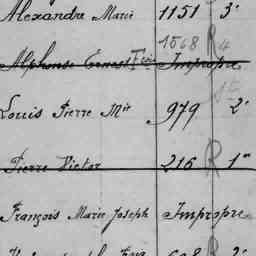 Alexandre Marie 1151 3e
1568 R 4
Alphonse Ernest Frois Impropre
Louis Pierre Mie 979 2e
Pierre Victor 216 R 1er
François Marie Joseph Impropre